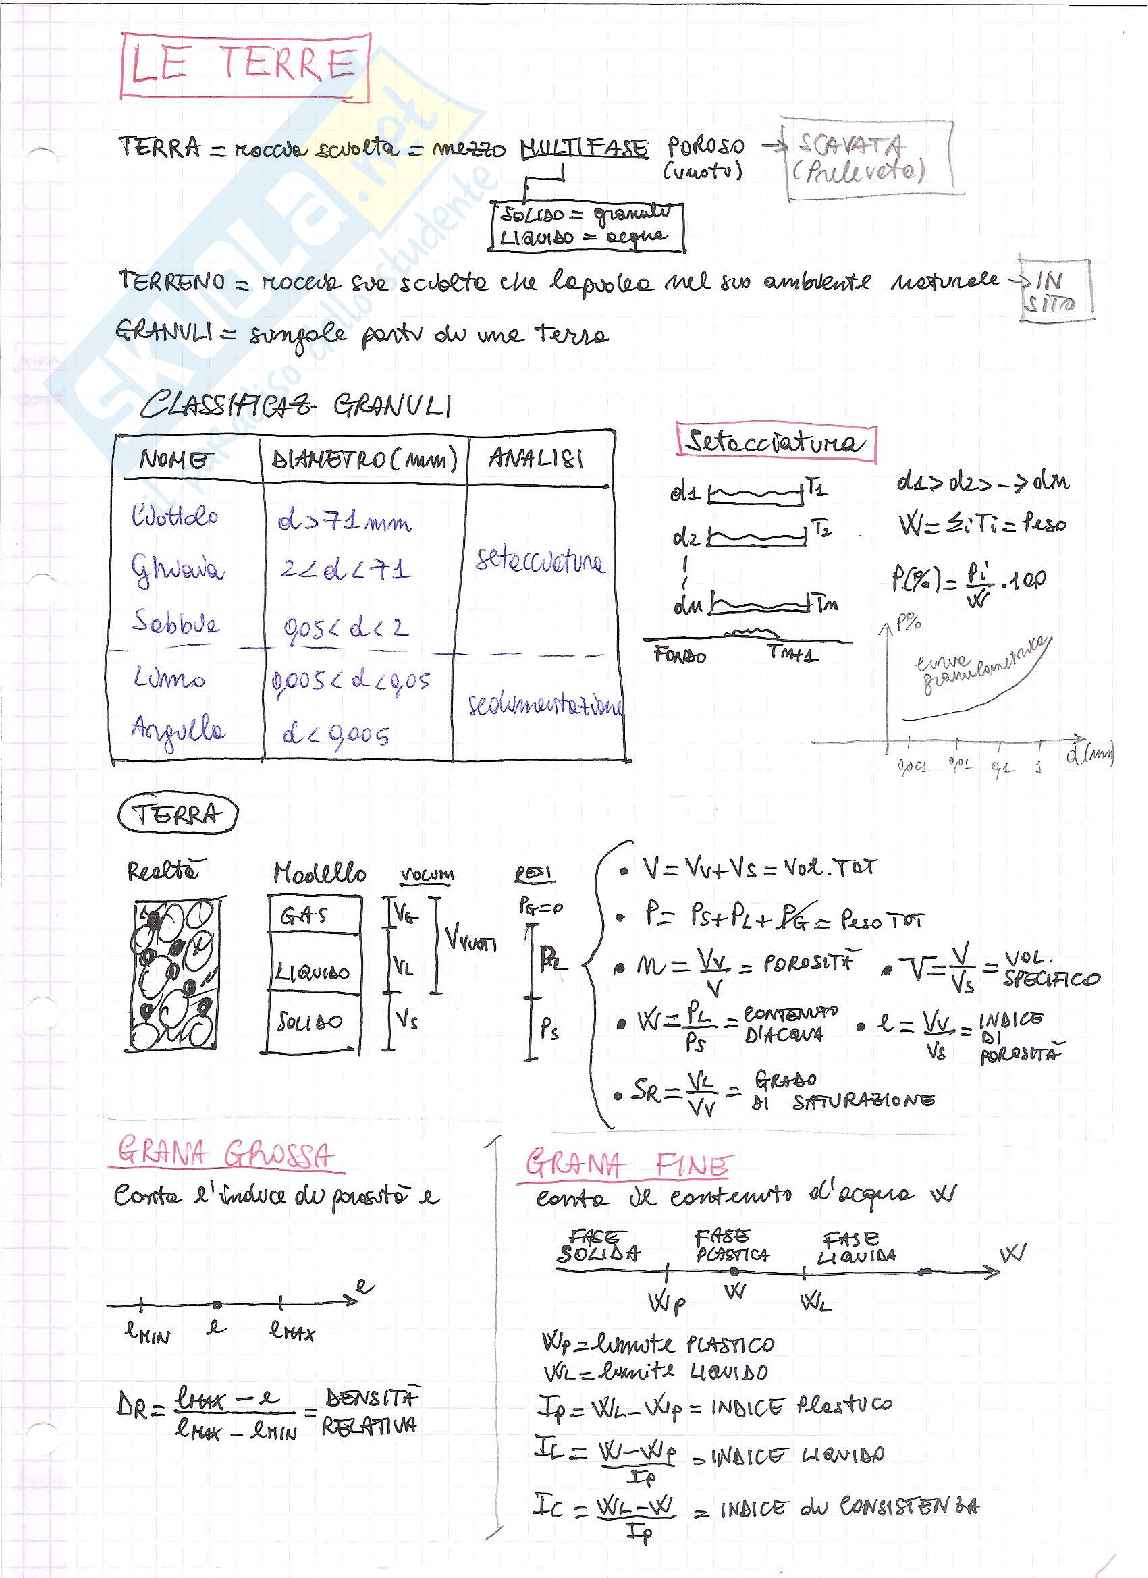 LE TERRE
TERRA = roccia sciolta = mezzo MULTIFASE POROSO → SCAVATA
(vuoti) (Prelevata)
SOLIDO = granuli
LIQUIDO = acqua
TERRENO = roccia sia sciolta che lapidea nel suo ambiente naturale → IN SITO
GRANULI = singole parti di una terra
CLASSIFICAZ. GRANULI
NOME DIAMETRO (mm) ANALISI
Ciottolo d > 71 mm
Ghiaia 2 < d < 71 setacciatura
Sabbia 0,05 < d < 2
Limo 0,005 < d < 0,05
Argilla d < 0,005 sedimentazione
Setacciatura
d1 T1
d2 T2
dn Tn
FONDO Tn+1
d1 > d2 > -> dn
W = Σi Ti = Peso
P(%) = Pi/W · 100
P%
curva granulometrica
0,001 0,01 0,1 1 d (mm)
TERRA
Realtà Modello VOLUMI PESI
GAS VG PG=0
LIQUIDO VL VVUOTI PL
SOLIDO VS PS
• V = Vv + Vs = Vol. TOT
• P = PS + PL + PG = Peso TOT
• n = Vv/V = POROSITÀ • V = V/Vs = VOL. SPECIFICO
• W = PL/PS = CONTENUTO D'ACQUA • e = Vv/Vs = INDICE DI POROSITÀ
• SR = VL/Vv = GRADO DI SATURAZIONE
GRANA GROSSA
Conta l'indice di porosità e
e
eMIN e eMAX
DR = eMAX - e / eMAX - eMIN = DENSITÀ RELATIVA
GRANA FINE
conta il contenuto d'acqua W
FASE SOLIDA FASE PLASTICA FASE LIQUIDA W
Wp W WL
Wp = limite PLASTICO
WL = limite LIQUIDO
Ip = WL - Wp = INDICE Plastico
IL = W - Wp / Ip = INDICE LIQUIDO
IC = WL - W / Ip = INDICE di CONSISTENZA
SKUOLA.net
il paradiso dello studente